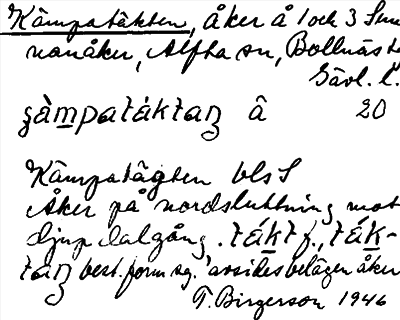 Kämpatäkten, åker å 1 och 3 Sunn
nanåker, Alfta sn, Bollnäs t
Gävl. l.
şàm̲patáktaṉ â 20
Kämpatägten bls S
Åker på nordsluttning mot
djup dalgång. tákt f., ták-
taṉ best. form sg. 'avsides belägen åker
T. Birgerson 1946